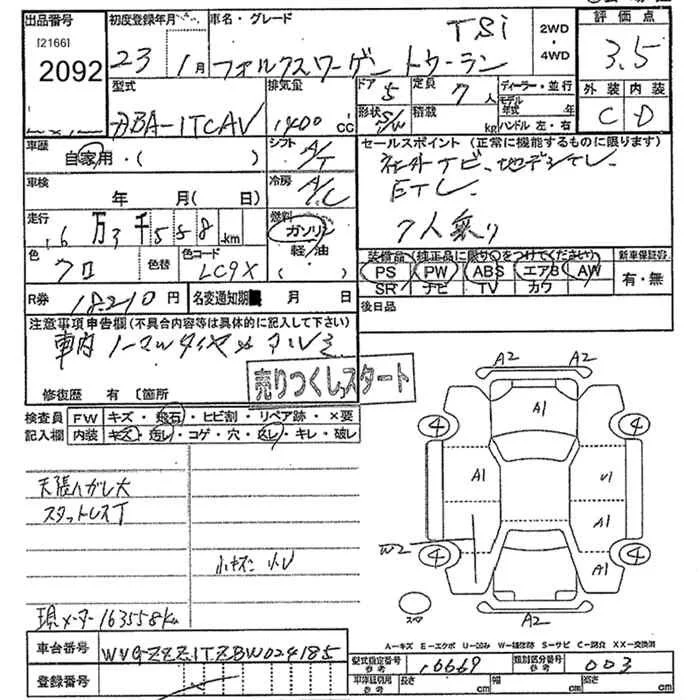 出品番号
[2166]
2092
初度登録年月
23 1月
車名・グレード
TSi
フォルクスワーゲン トゥーラン
2WD
・
4WD
評価点
3.5
外装 内装
C D
型式
ABA-1TCAV
排気量
1400 cc
ドア 5
定員 7人
ディーラー・並行
モデル年式 年
形状 S/W
積載 kg
ハンドル 左・右
車歴
自家用・( )
シフト A/T
セールスポイント (正常に機能するものに限ります)
社外ナビ、地デジTV
ETC
7人乗り
車検
年 月(日)
冷房 A/C
走行
16万3千558km
燃料
ガソリン
軽・油
( )
色
クロ
色替
色コード
LC9X
装備品(純正品に限り○をつけてください)
PS PW ABS エアB AW
SR ナビ TV カワ
新車保証書
有・無
R券 18210円
名変通知期限 月 日
後日品
注意事項申告欄(不具合内容等は具体的に記入して下さい)
車内ノーマルタイヤ
修復歴 有〔箇所
売りつくしスタート
検査員記入欄
FW キズ・飛石・ヒビ割・リペア跡・×要
内装 キズ・汚レ・コゲ・穴・スレ・キレ・破レ
天張ハガレ大
スタットレスT
小キズ 小U
現メーター163558km
A2 A2
A1
4 4
A1 U1
A1
W2
4 4
A1
スペア
A2
A－キズ E－エクボ U－凹み W－補修跡 S－サビ C－腐食 XX－交換済
車台番号
WVGZZZ1TZBW024185
登録番号
型式指定番号 参考 16669
類別区分番号 参考 003
車庫証明用 参考
長さ cm
幅 cm
高さ cm